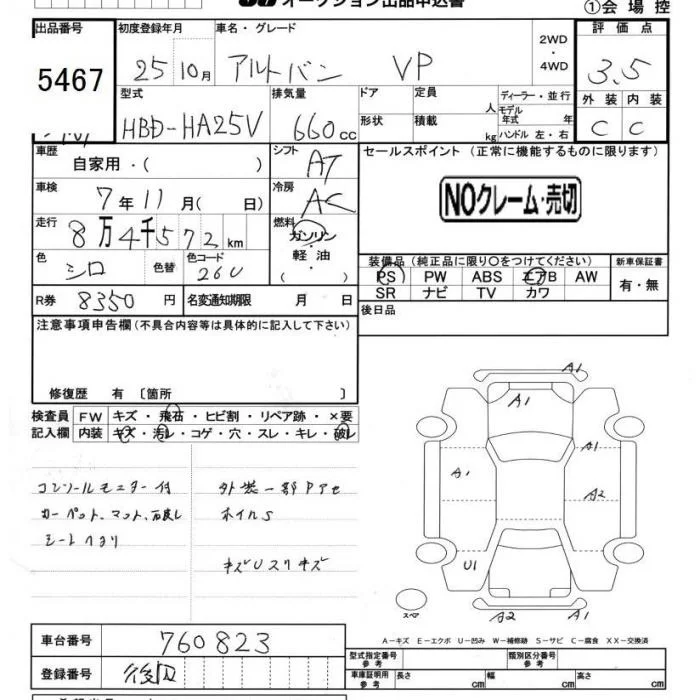 オークション出品申込書
①会 場 控
出品番号 初度登録年月 車名・グレード 2WD・4WD 評価点
5467 25 10月 アルトバン VP 3.5
型式 排気量 ドア 定員 人 ディーラー・並行 外装 内装
HBD-HA25V 660cc 形状 積載 kg モデル年式 年 ハンドル 左・右 C C
車歴 自家用・( ) シフト AT セールスポイント (正常に機能するものに限ります)
車検 7年11月( 日) 冷房 AC NOクレーム・売切
走行 8万4千572km 燃料 ガソリン・軽油・( )
色 シロ 色替 色コード 26U 装備品(純正品に限り○をつけてください) 新車保証書
PS PW ABS エアB AW 有・無
SR ナビ TV カワ
R券 8350円 名変通知期限 月 日 後日品
注意事項申告欄(不具合内容等は具体的に記入して下さい)
修復歴 有〔箇所 〕
検査員 FW キズ・飛石・ヒビ割・リペア跡・×要
記入欄 内装 キズ・汚レ・コゲ・穴・スレ・キレ・破レ
コンソールモニター付 外装一部Pアセ
カーペット、マット、
ホイルS
シート
キズUスリキズ
A1
A1
A1
A1
A2
U1
A2 A1
スペア
A-キズ E-エクボ U-凹み W-補修跡 S-サビ C-腐食 XX-交換済
車台番号 760823 型式指定番号 参考 類別区分番号 参考
登録番号 後日 車庫証明用 参考 長さ cm 幅 cm 高さ cm